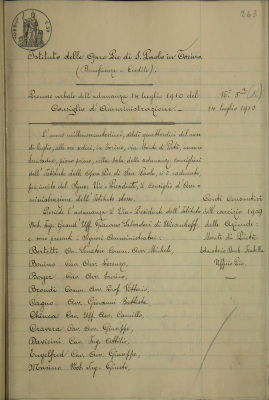 263
Istituto delle Opere Pie di S. Paolo in Torino
(Beneficenza e Credito)
Processo verbale dell'adunanza 14 luglio 1910 del
Consiglio d'Amministrazione.
N.° 5
14 luglio 1910
L'anno millenovecentodieci, addì quattordici del mese
di luglio, alle ore sedici, in Torino, via Monte di Pietà, numero
primo piano, nella sala delle adunanze consigliari
dell'Istituto delle Opere Pie di San Paolo, si è radunato,
per invito del Signor Vice-Presidente, il Consiglio d'Am-
ministrazione dell'Istituto stesso.
Presiede l'adunanza il Vice-Presidente dell'Istituto
Nob. Ing. Grand' Uff. Giacomo
e sono presenti i Signori Amministratori:
Conti Consuntivi
dell'esercizio 1909
delle Aziende:
Monte di Pietà
Ufficio Pio
Bertetti Avv. Michele,
Bonino Cav. Avv. Lorenzo,
Boyer Cav. Avv. Enrico,
Brondi Comm. Avv. Prof. Vittorio,
Cagno Avv. Giovanni Battista,
Chiesa Cav. Uff. Avv. Camillo,
Cravero Cav. Avv. Giuseppe,
Davicini Cav. Ing. Attilio,
Engelfred Cav. Avv. Giuseppe,
Marino Nob. Ing. Guido,